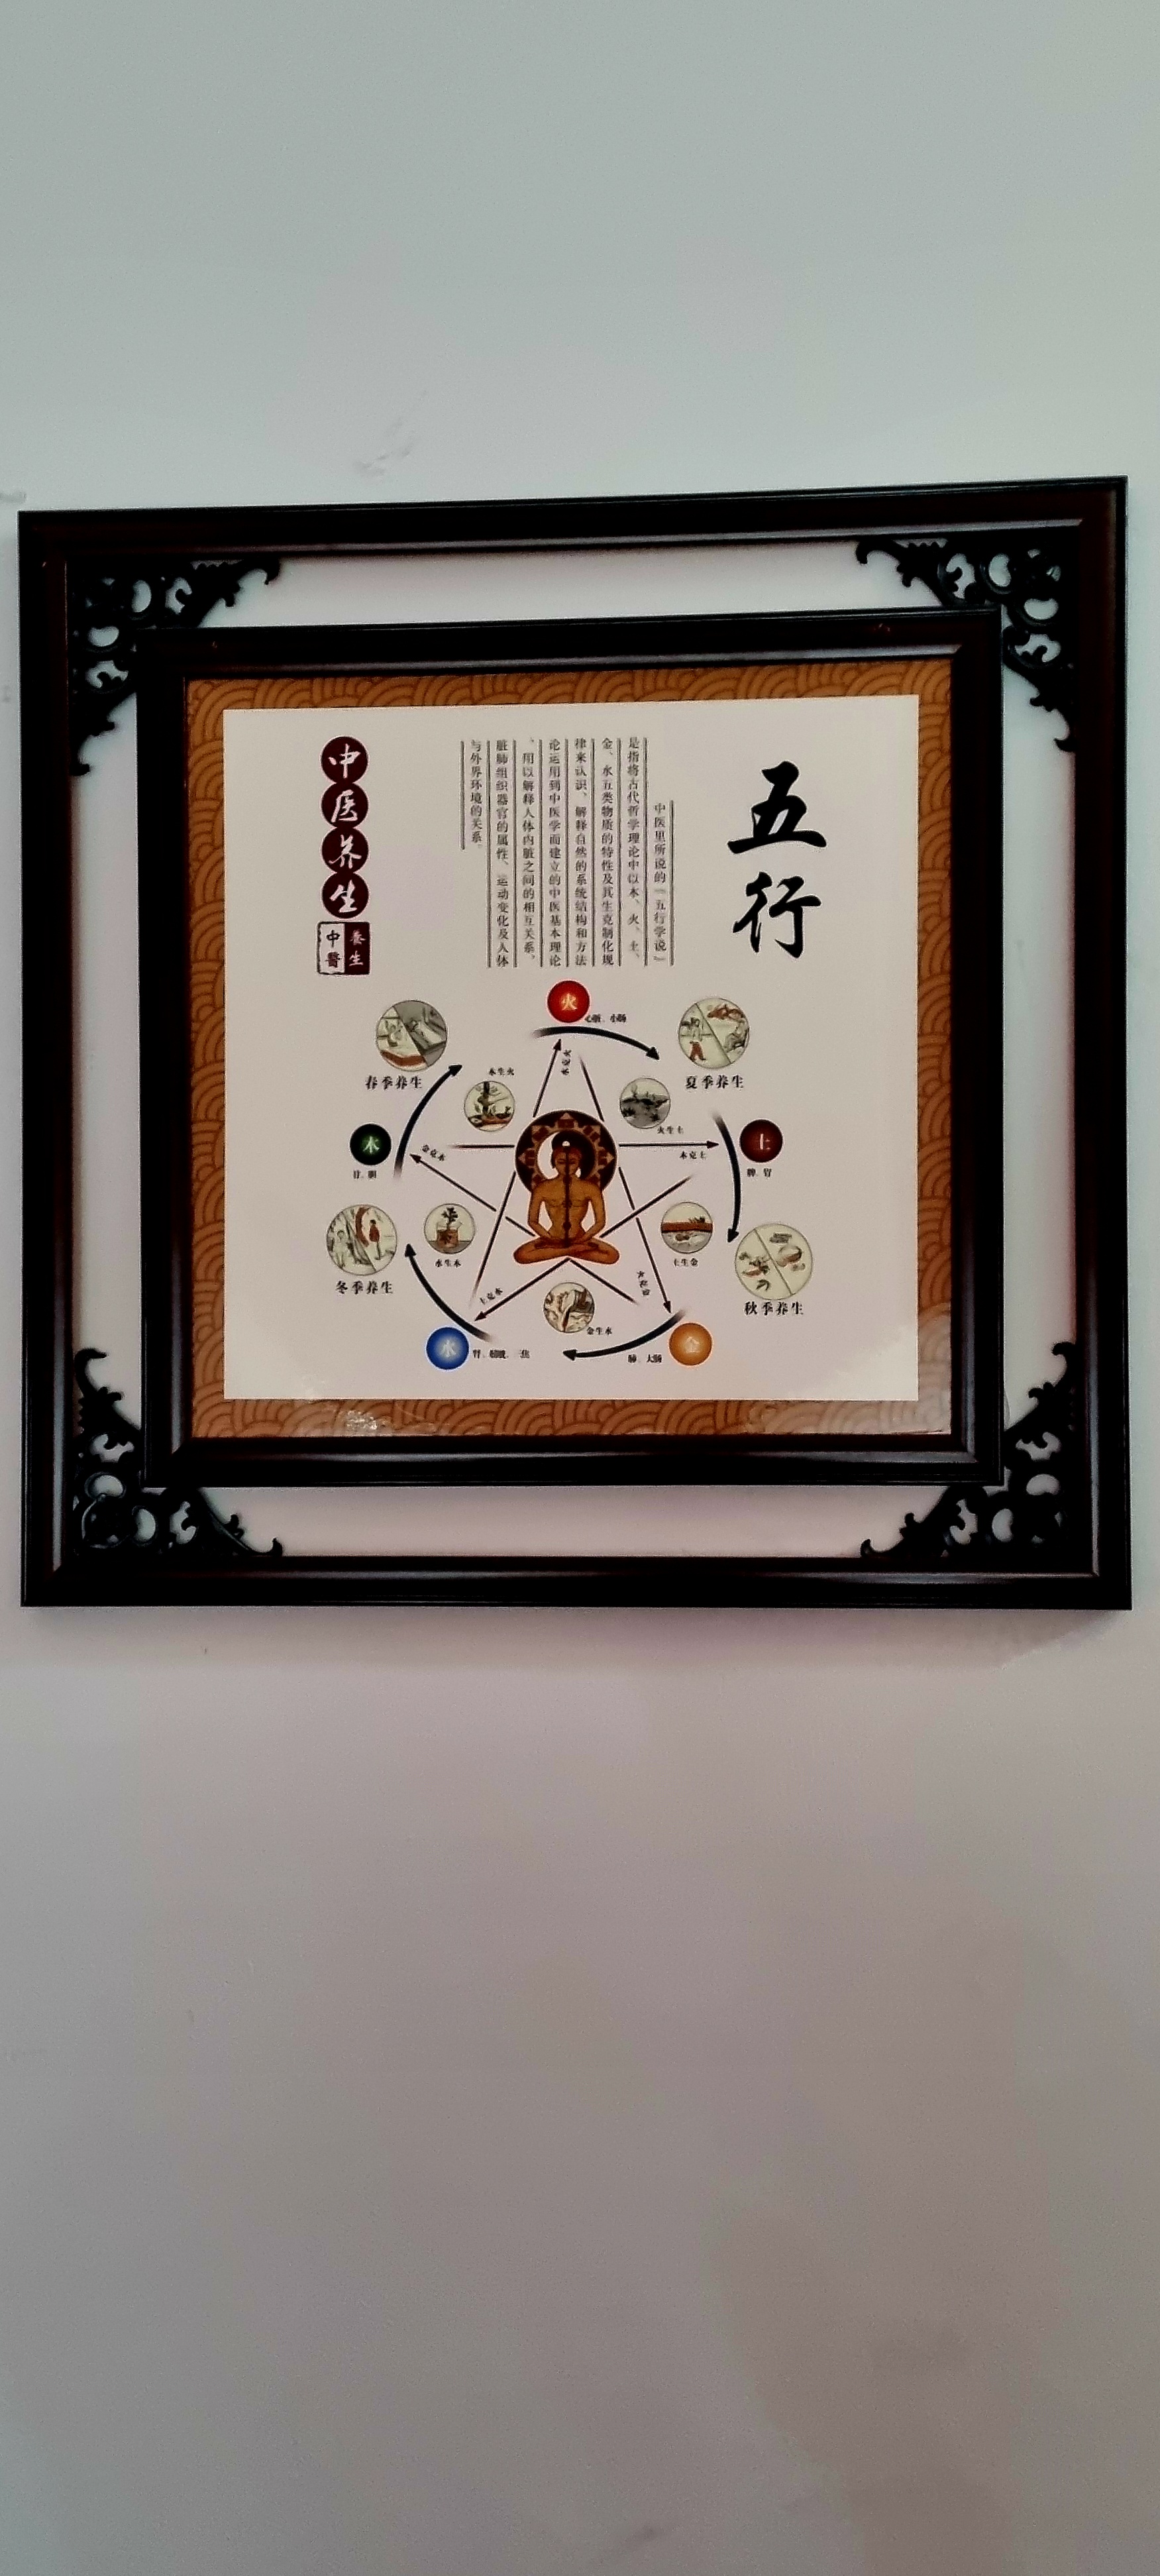 五行
中医里所说的“五行学说”
是指将古代哲学理论中以木、火、土、
金、水五类物质的特性及其生克制化规
律来认识、解释自然的系统结构和方法
论运用到中医学而建立的中医基本理论
，用以解释人体内脏之间的相互关系，
脏腑组织器官的属性、运动变化及人体
与外界环境的关系。
中医养生
養生
中醫
火
心脏、小肠
春季养生
夏季养生
木生火
水克火
火生土
木
肝、胆
金克木
木克土
土
脾、胃
冬季养生
水生木
土生金
秋季养生
土克水
金生水
水
肾、膀胱、
焦
肺、大肠
金